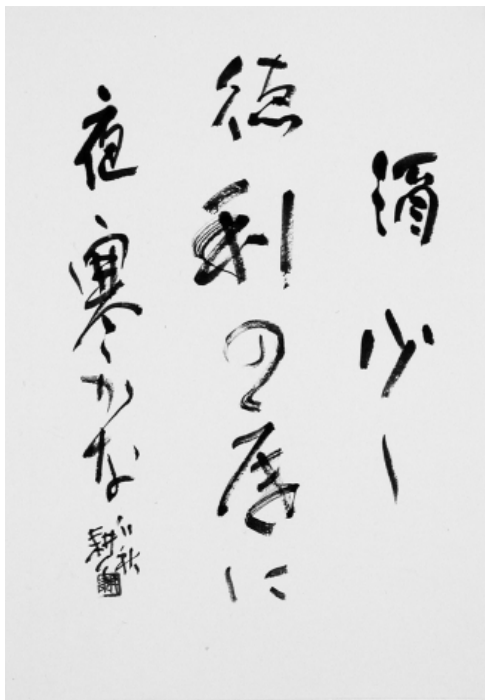 酒少し
徳利の底に
夜寒かな